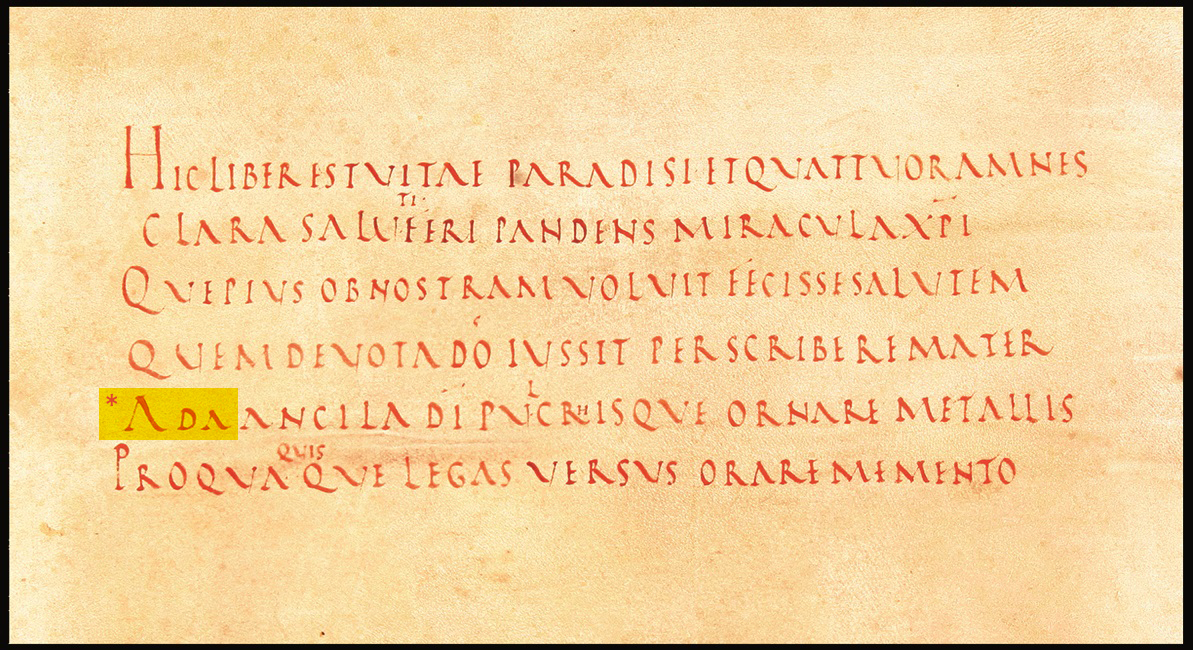 HIC LIBER EST VITAE PARADISI ET QVATTVOR AMNES
TI
CLARA SALUFERI PANDENS MIRACVLA XPI
QVE PIVS OB NOSTRAM VOLVIT FECISSE SALVTEM
QUEM DEVOTA DO IVSSIT PERSCRIBERE MATER
L
*ADA ANCILA DI PUCRHISQVE ORNARE METALLIS
QVIS
PRO QVA QVE LEGAS VERSVS ORARE MEMENTO